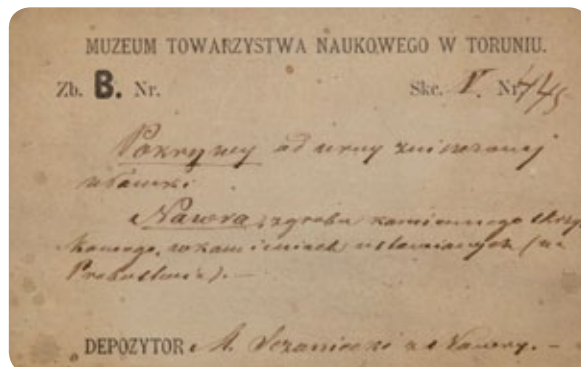 MUZEUM TOWARZYSTWA NAUKOWEGO W TORUNIU.
Zb. B. Nr. Skc. V. Nr
Pokrywy od urny zniszczonej
Nawra, z grobu kamiennego skrzyn-
kowego, w kamieniach ustawianych (na
Probostwie). —
DEPOZYTOR M. Sczaniecki z Nawry. —